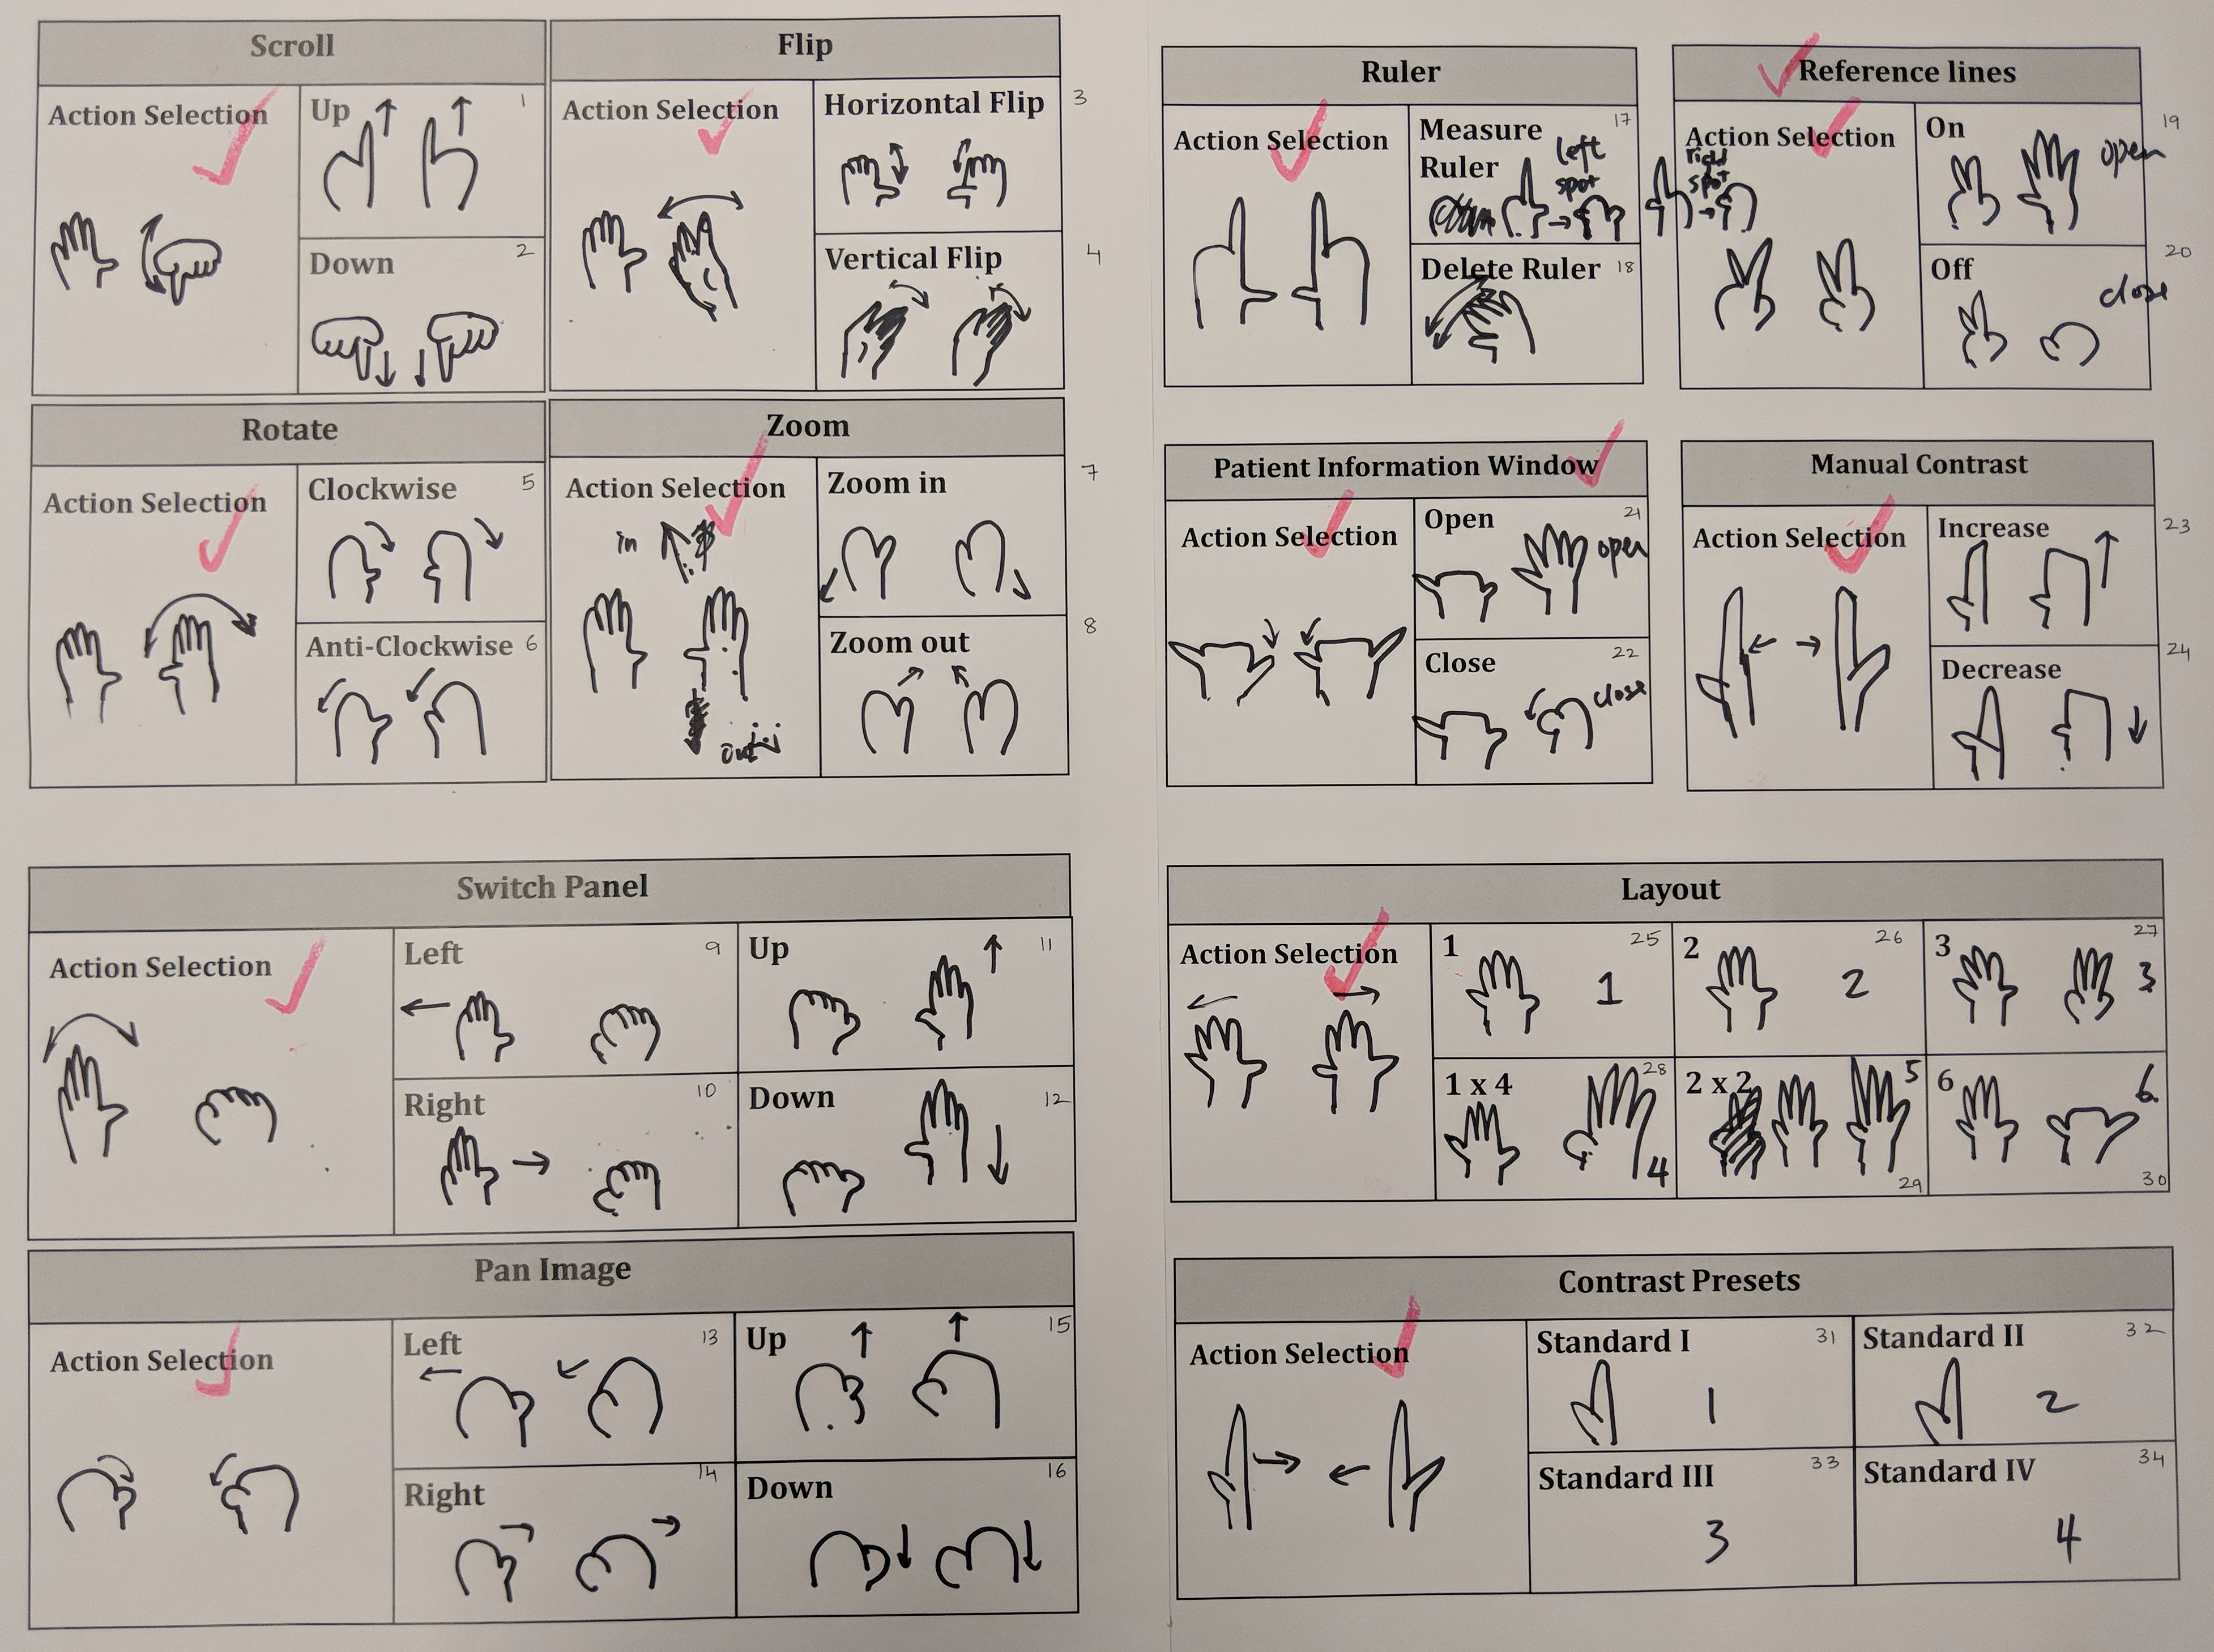 Scroll
Action Selection
Up
1
Down
2
Flip
Action Selection
Horizontal Flip
3
Vertical Flip
4
Rotate
Action Selection
Clockwise
5
Anti-Clockwise
6
Zoom
Action Selection
in
out
Zoom in
7
Zoom out
8
Switch Panel
Action Selection
Left
9
Up
11
Right
10
Down
12
Pan Image
Action Selection
Left
13
Up
15
Right
14
Down
16
Ruler
Action Selection
Measure
Ruler
17
left
spot
right
spot
Delete Ruler
18
Reference lines
Action Selection
On
19
open
Off
20
close
Patient Information Window
Action Selection
Open
21
open
Close
22
close
Manual Contrast
Action Selection
Increase
23
Decrease
24
Layout
Action Selection
1
25
1
2
26
2
3
27
3
1 x 4
28
4
2 x 2
5
29
6
6
30
Contrast Presets
Action Selection
Standard I
31
1
Standard II
32
2
Standard III
33
3
Standard IV
34
4